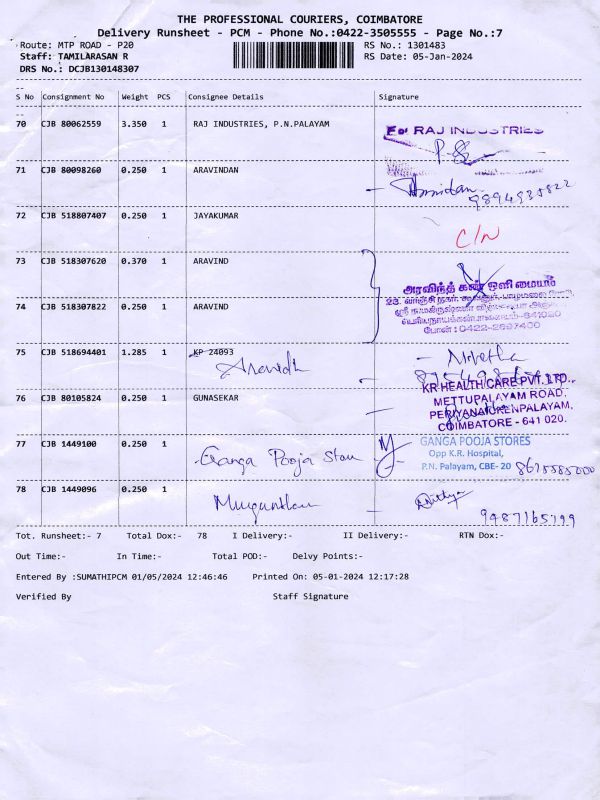 THE PROFESSIONAL COURIERS, COIMBATORE
Delivery Runsheet - PCM - Phone No.:0422-3505555 - Page No.:7
Route: MTP ROAD - P20
RS No.: 1301483
Staff: TAMILARASAN R
RS Date: 05-Jan-2024
DRS No.: DCJB130148307
S No Consignment No Weight PCS Consignee Details Signature
70 CJB 80062559 3.350 1 RAJ INDUSTRIES, P.N.PALAYAM
For RAJ INDUSTRIES
71 CJB 80098260 0.250 1 ARAVINDAN
9894935822
72 CJB 518807407 0.250 1 JAYAKUMAR
C/N
73 CJB 518307620 0.370 1 ARAVIND
அரவிந்த் கண் ஒளி மையம்
74 CJB 518307822 0.250 1 ARAVIND
போன் : 0422-2697400
75 CJB 518694401 1.285 1 KP 24093
Aravindh
Nivetha
76 CJB 80105824 0.250 1 GUNASEKAR
KR HEALTH CARE PVT. LTD.,
METTUPALAYAM ROAD,
PERIYANAICKENPALAYAM,
COIMBATORE - 641 020.
77 CJB 1449100 0.250 1 Ganga Pooja Store
GANGA POOJA STORES
Opp K.R. Hospital,
P.N. Palayam, CBE- 20
78 CJB 1449096 0.250 1
9487165799
Tot. Runsheet:- 7 Total Dox:- 78 I Delivery:- II Delivery:- RTN Dox:-
Out Time:- In Time:- Total POD:- Delvy Points:-
Entered By :SUMATHIPCM 01/05/2024 12:46:46 Printed On: 05-01-2024 12:17:28
Verified By Staff Signature